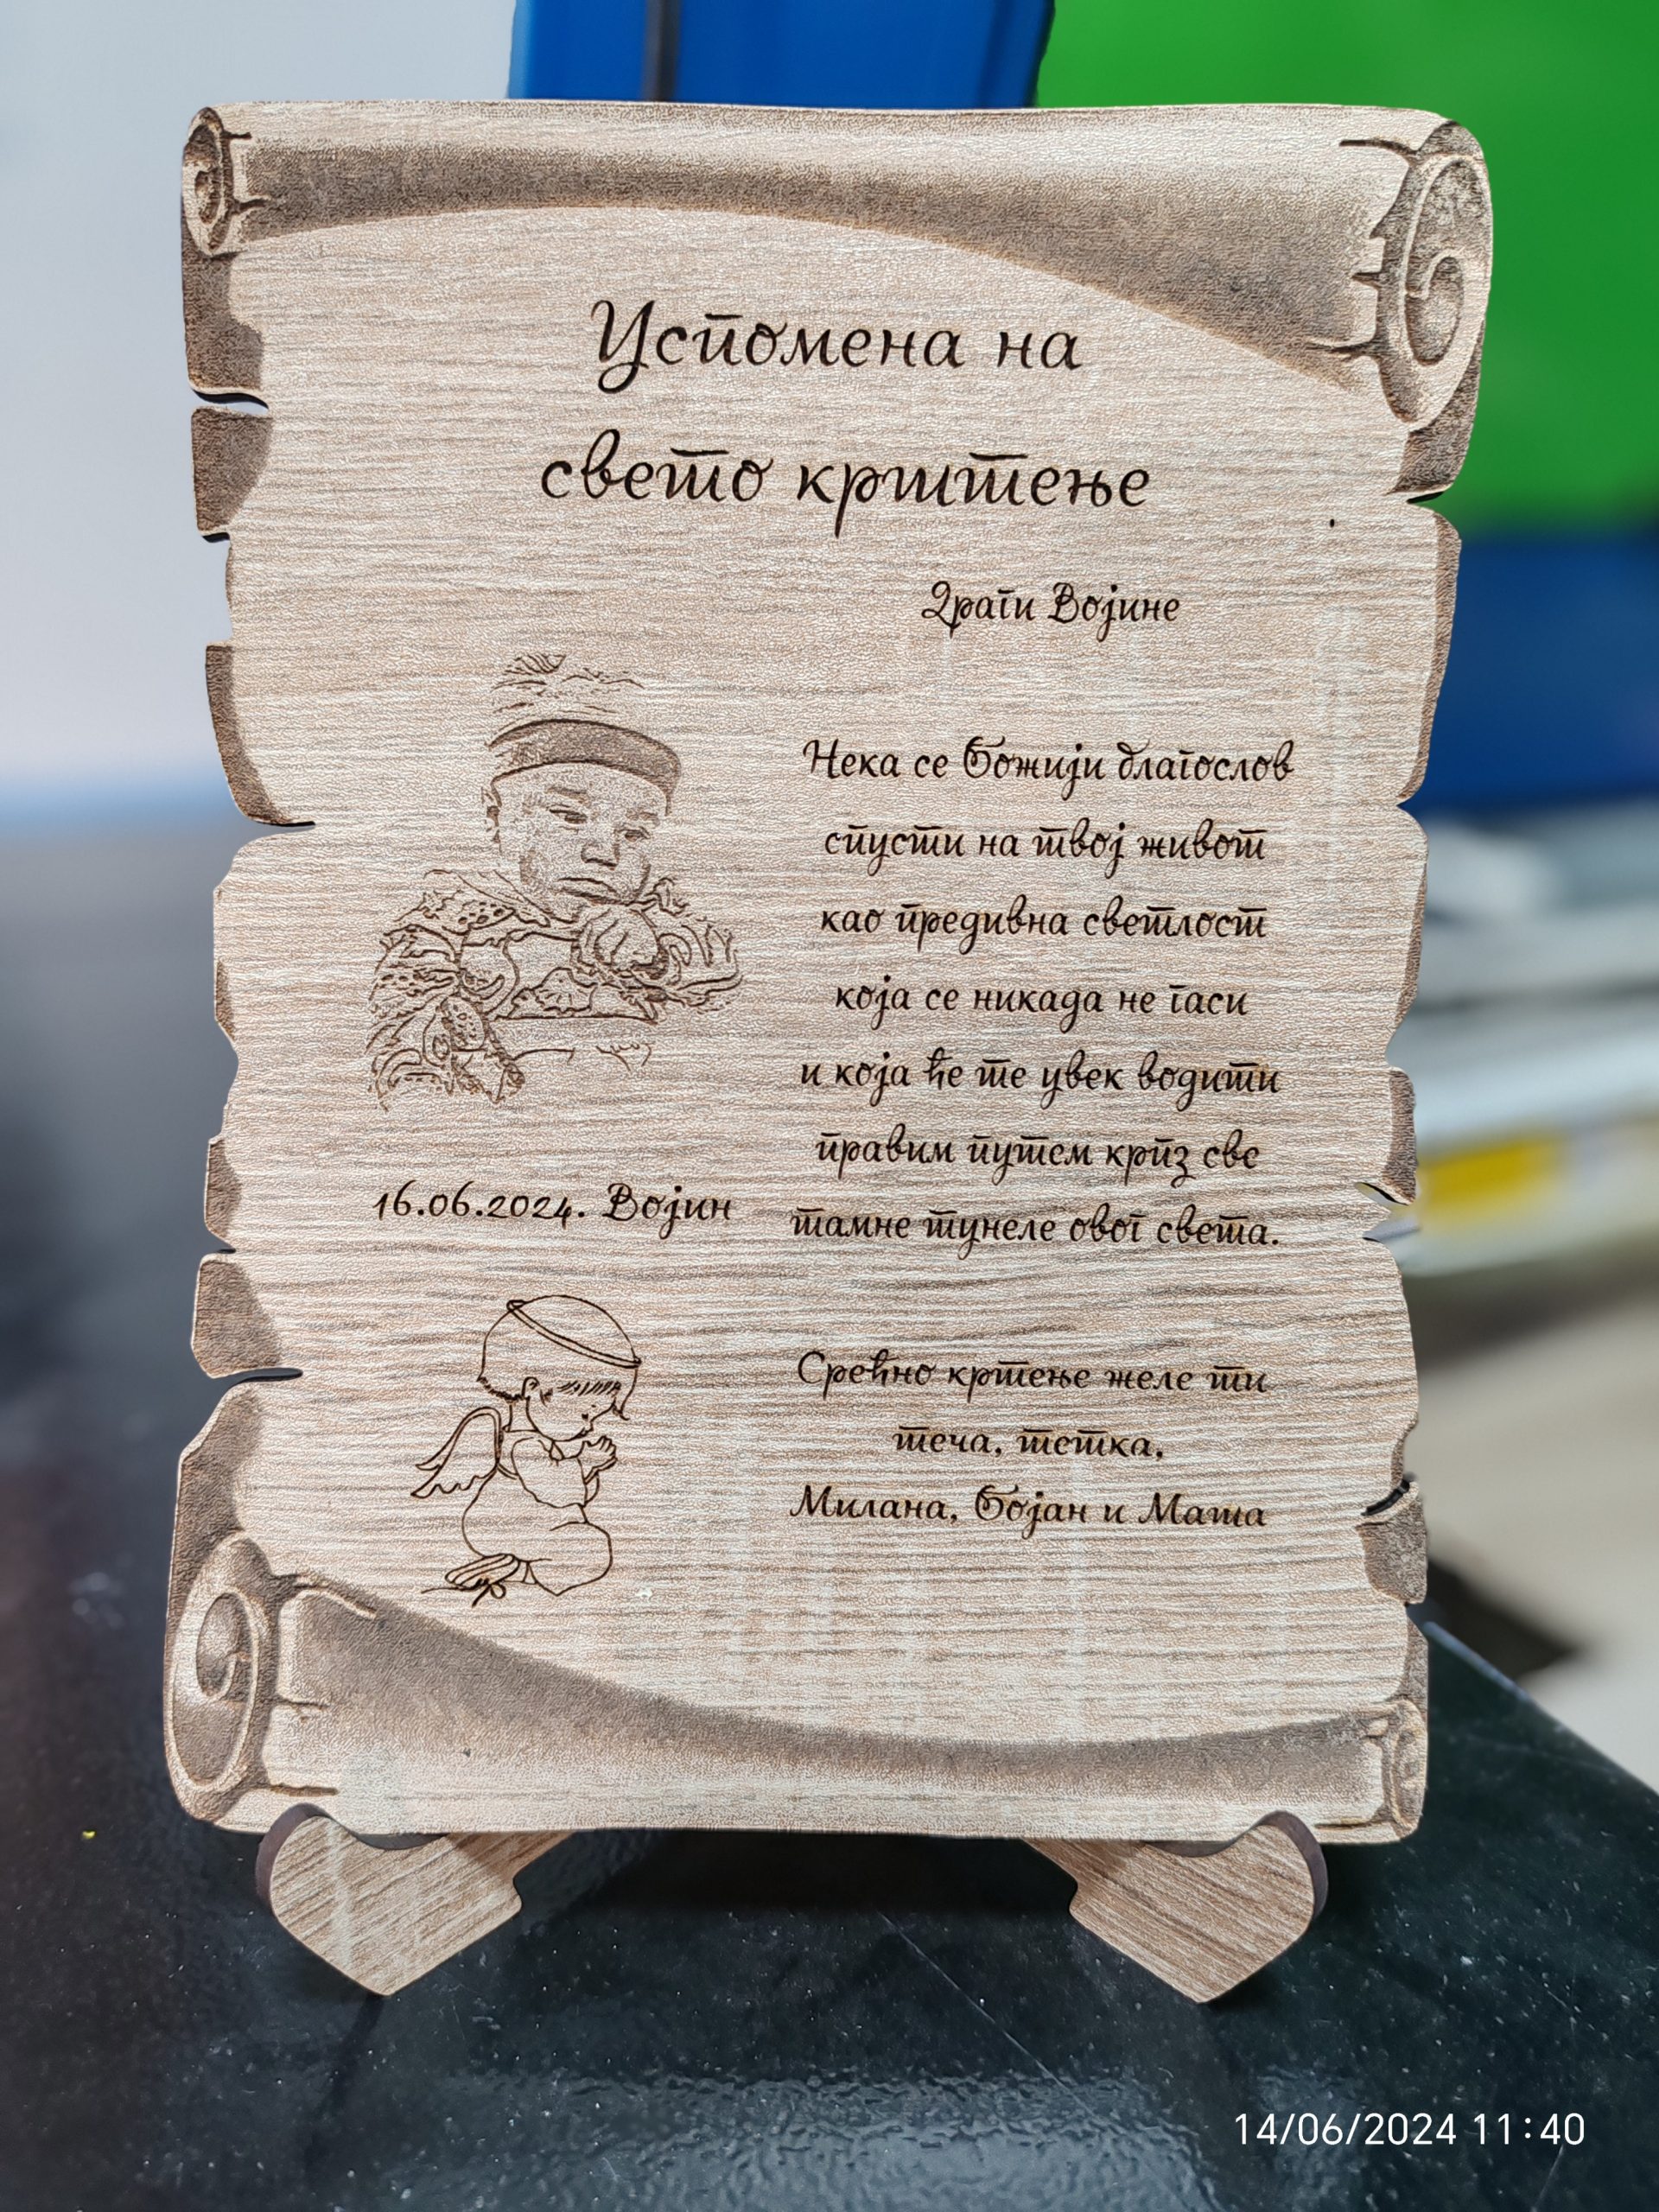 Успомена на
свето крштење
Драги Војине
Нека се Божији благослов
спусти на твој живот
као предивна светлост
која се никада не гаси
и која ће те увек водити
правим путем крпз све
тамне тунеле овог света.
16.06.2024. Војин
Срећно кртење желе ти
теча, тетка,
Милана, Бојан и Маша
14/06/2024 11:40